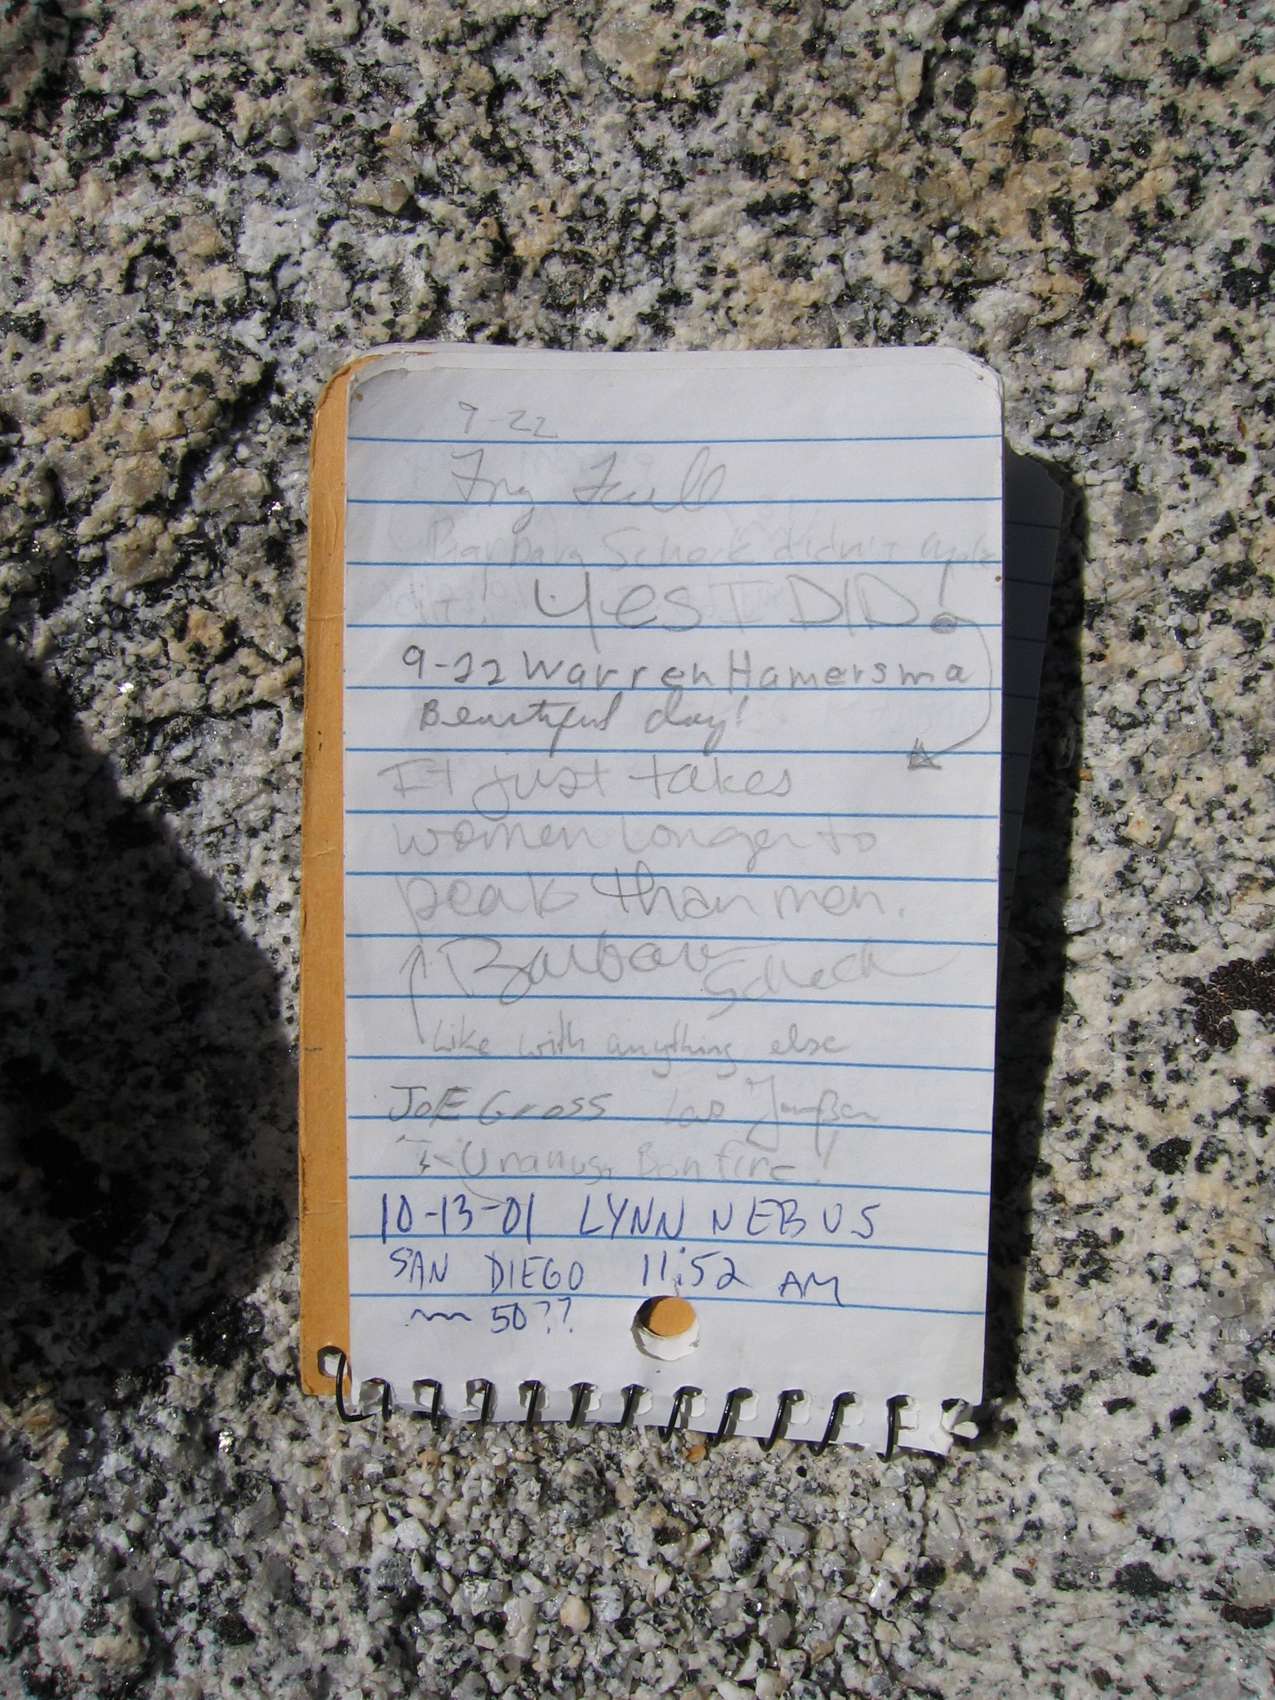 9-22
Barbara Scheck didn't make
it! Yes I DID!
9-22 Warren Hamersma
Beautiful day!
It just takes
women longer to
peak than men.
Barbara Scheck
like with anything else
JOE GROSS
Uranus Bonfire!
10-13-01 LYNN NEBUS
SAN DIEGO 11:52 AM
50??